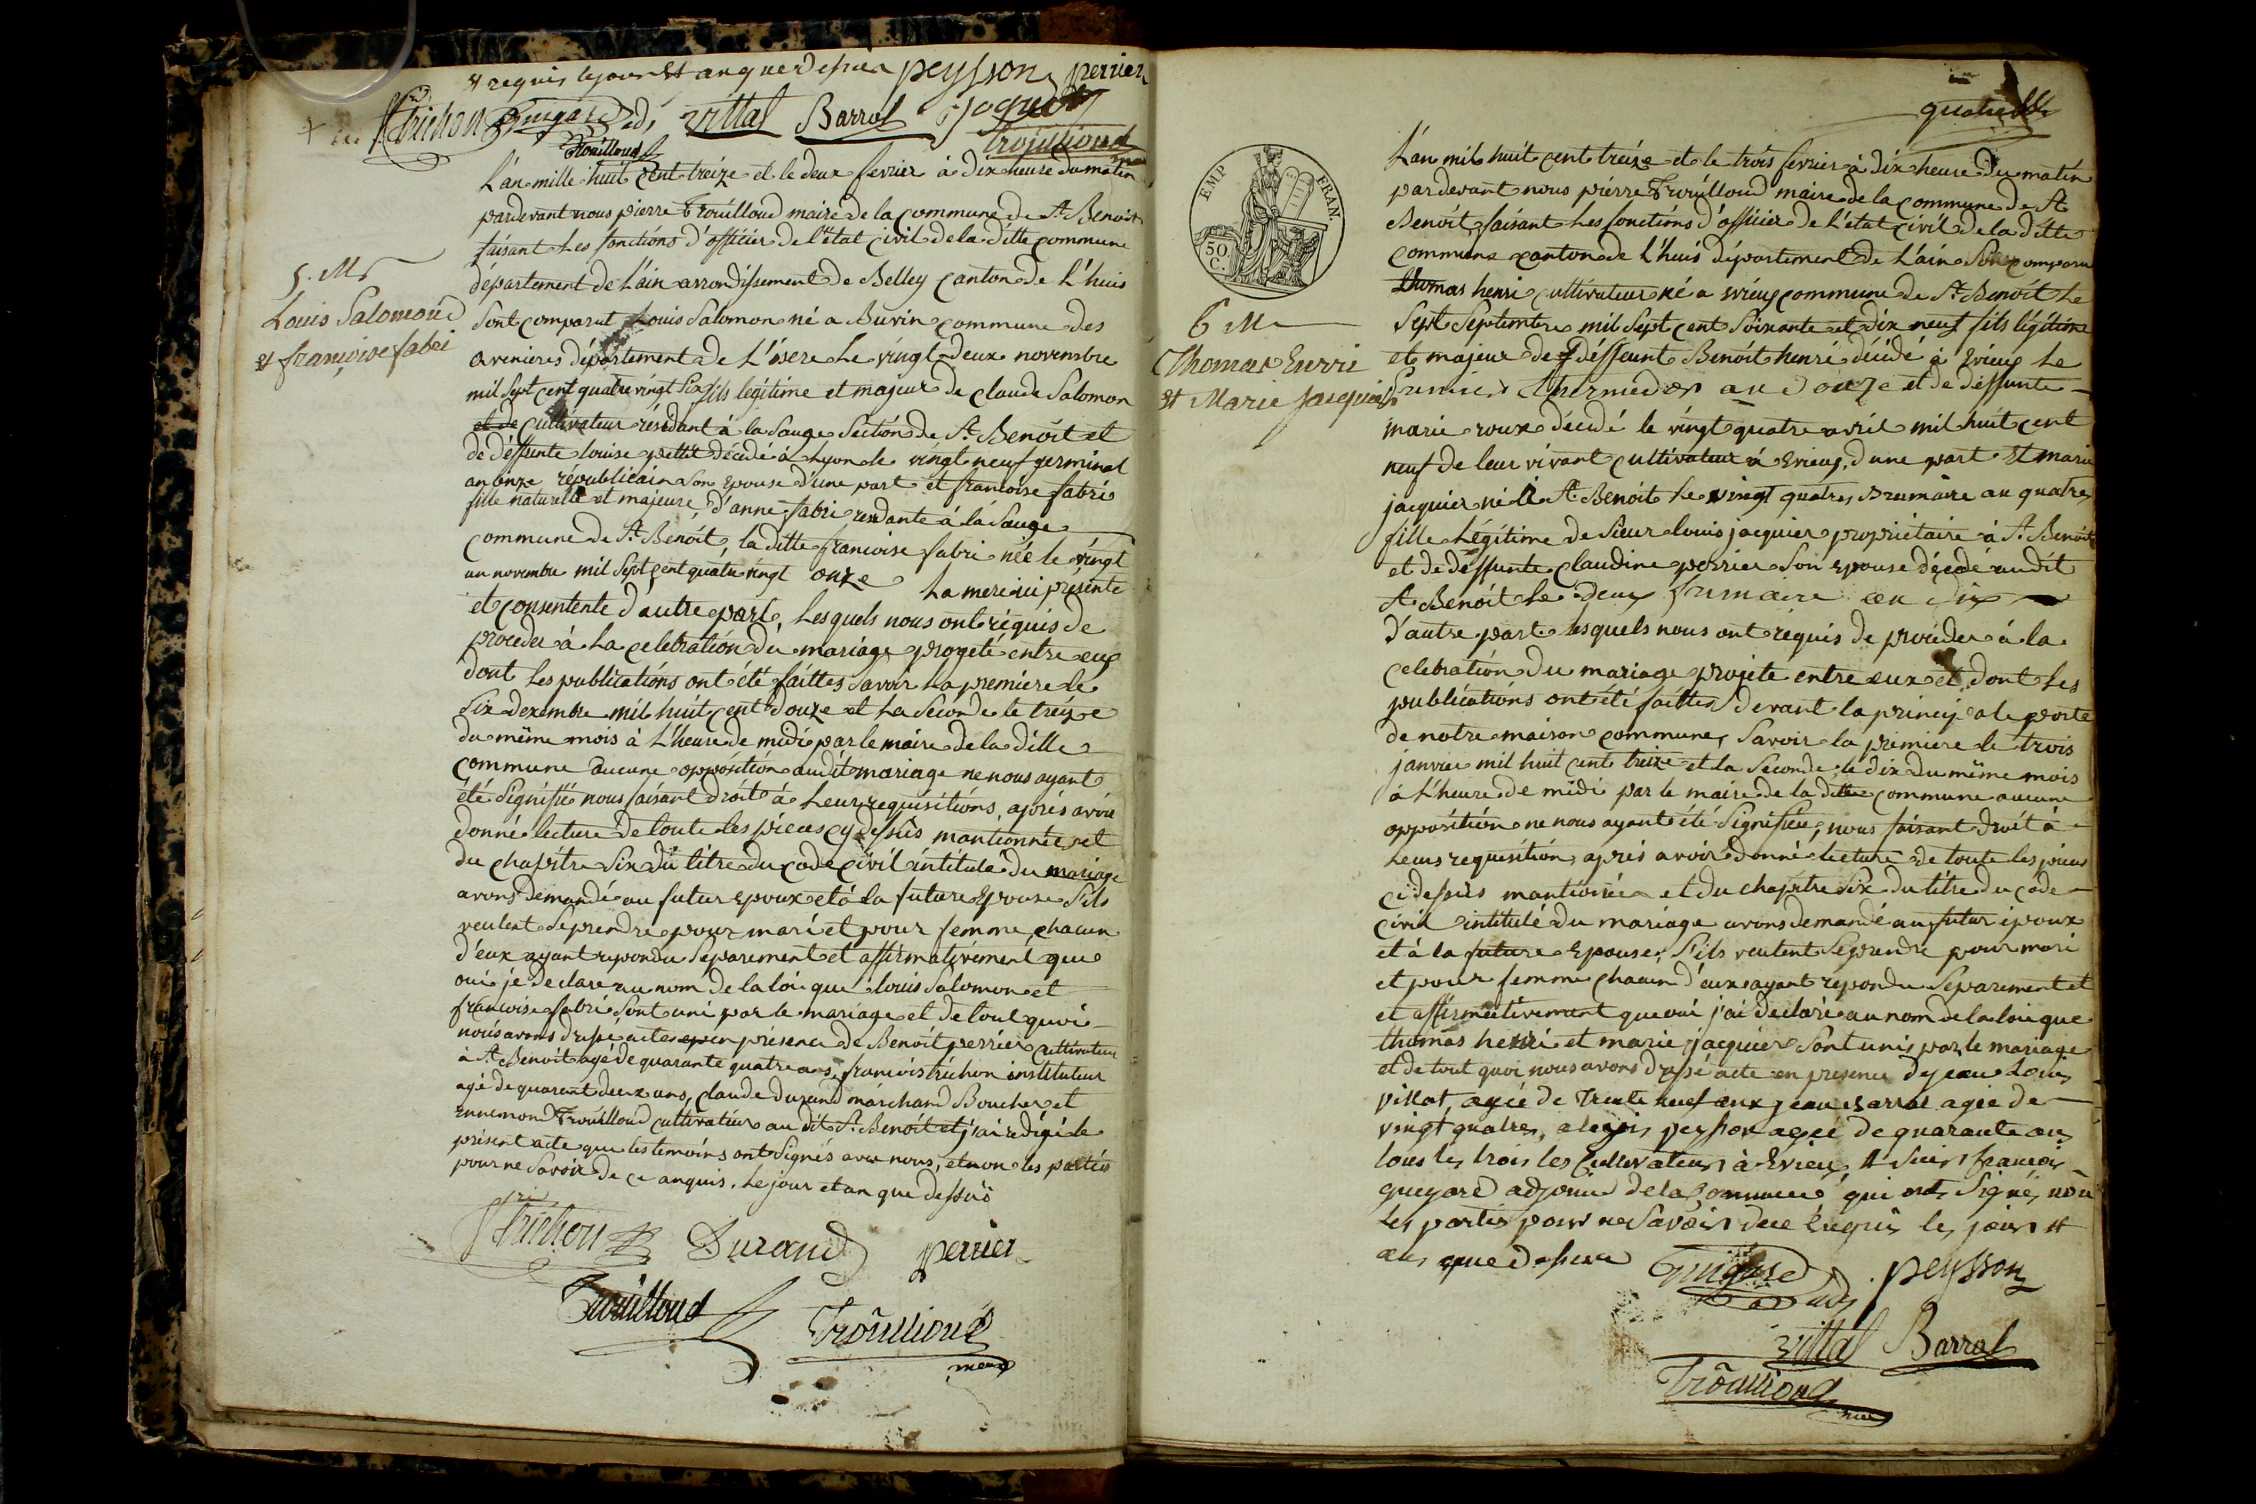 et requis le jour et an que dessus peysson perrier
Trichon Guigard adj. vittal Barral Joquet
Trouilloud Trouilloud
maire
5. M.
Louis Salomond
et françoise fabri
L'an mille huit cent treize et le deux fevrier à dix heure du matin
pardevant nous pierre Trouilloud maire de la commune de St Benoit
faisant les fonctions d'officier de l'état civil de la ditte commune
département de L'ain arrondissement de Belley canton de L'huis
sont comparut Louis Salomon né a Buvin commune des
avenieres département de L'isere le vingt deux novembre
mil sept cent quatre vingt six fils legitime et majeur de claude Salomon
et de cultivateur résidant à la Sauge Section de St Benoit et
de déffunte louise pettit décédé à Lyon le vingt neuf germinal
an onze républicain son epouse d'une part et francoise fabri
fille naturelle et majeure d'anne fabri residante à la Sauge
commune de St Benoit, la ditte francoise fabri née le vingt
un novembre mil sept cent quatre vingt onze La mere ici présente
et consentente d'autre part, Lesquels nous ont réquis de
proceder à La celebration du mariage progeté entre eux
dont les publications ont été faittes savoir La premiere le
six dexembre mil huit cent douze et La seconde le treize
du même mois à L'heure de midi par le maire de la ditte
commune aucune opposition audit mariage ne nous ayant
été signifiée nous faisant droit à Leur requisitions, après avoir
donné lecture de toute les pieces cy dessus mantionnée, et
du chapitre six du titre du code civil intitulé du mariage
avons demandé au futur epoux et à la future epouse s'ils
veulent se prendre pour mari et pour femme, chacun
d'eux ayant repondu séparement et affirmativement que
oui je declare au nom de la loi que louis Salomon et
francoise fabri sont uni par le mariage et de tout quoi
nous avons drèssé acte en présence de Benoit perrier cultivateur
à St Benoit agé de quarante quatre ans, francois trichon instituteur
agé de quarent deux ans, claude durand marchand Boucher et
Ennemond Trouilloud cultivateur au dit St Benoit et j'ai redigé le
présent acte que les temoins ont signés avec nous, et non les parties
pour ne savoir de ce anquis. Le jour et an que dessus
Trichon Durand perrier
Trouilloud Trouilloud
maire
quatre
EMP. FRAN.
50 C.
6 M
Thomas Enrri
et Marie Jacquier
L'an mil huit cent treize et le trois fevrier à dix heure du matin
pardevant nous pierre Trouilloud maire de la commune de St
Benoit faisant les fonctions d'officier de L'état civil de la ditte
commune canton de L'huis département de L'ain Sont comparu
thomas henri cultivateur né a evieux commune de St Benoit Le
sept septembre mil sept cent soixante et dix neuf fils légitime
et majeur de déffeunt Benoit henri décédé à Evieux le
premier thermidor an douze et de déffunte
marie roux décédé le vingt quatre avril mil huit cent
neuf de leur vivant cultivateur à Evieux, d'une part et marie
jacquier né à St Benoit le vingt quatre Brumaire an quatre
fille légitime de sieur louis jacquier proprietaire à St Benoit
et de déffunte claudine perrier son epouse décédé audit
St Benoit le deux frimaire an dix
d'autre part lesquels nous ont réquis de procéder à la
celebration du mariage projeté entre eux et dont les
publications ont été faittes devant la principale porte
de notre maison commune, savoir la premiere le trois
janvier mil huit cent treize et la seconde le dix du même mois
à L'heure de midi par le maire de la ditte commune aucune
opposition ne nous ayant été signifiée, nous faisant droit à
Leurs requisition après avoir donné lecture de toute les pieces
cidessus mantionnée et du chapitre six du titre du code
civil intitulé du mariage avons demandé au futur époux
et à la future epouse, s'ils veulent se prendre pour mari
et pour femme chacun d'eux ayant repondu séparement et
et affirmativement que oui j'ai declaré au nom de la loi que
thomas henri et marie jacquier sont unis par le mariage
et de tout quoi nous avons drèssé acte en presence de jean Louis
vittat, agée de trente neuf ans jean Barral agée de
vingt quatre, alexis peysson agée de quarante ans
tous les trois les cultivateurs à Evieux, et sieur francois
guigard adjoint de la commune qui ont signé, non
les parties pour ne savoir de ce enquis les jours et
an que dessus Guigard adj. peysson
vittal Barral
Trouilloud
maire